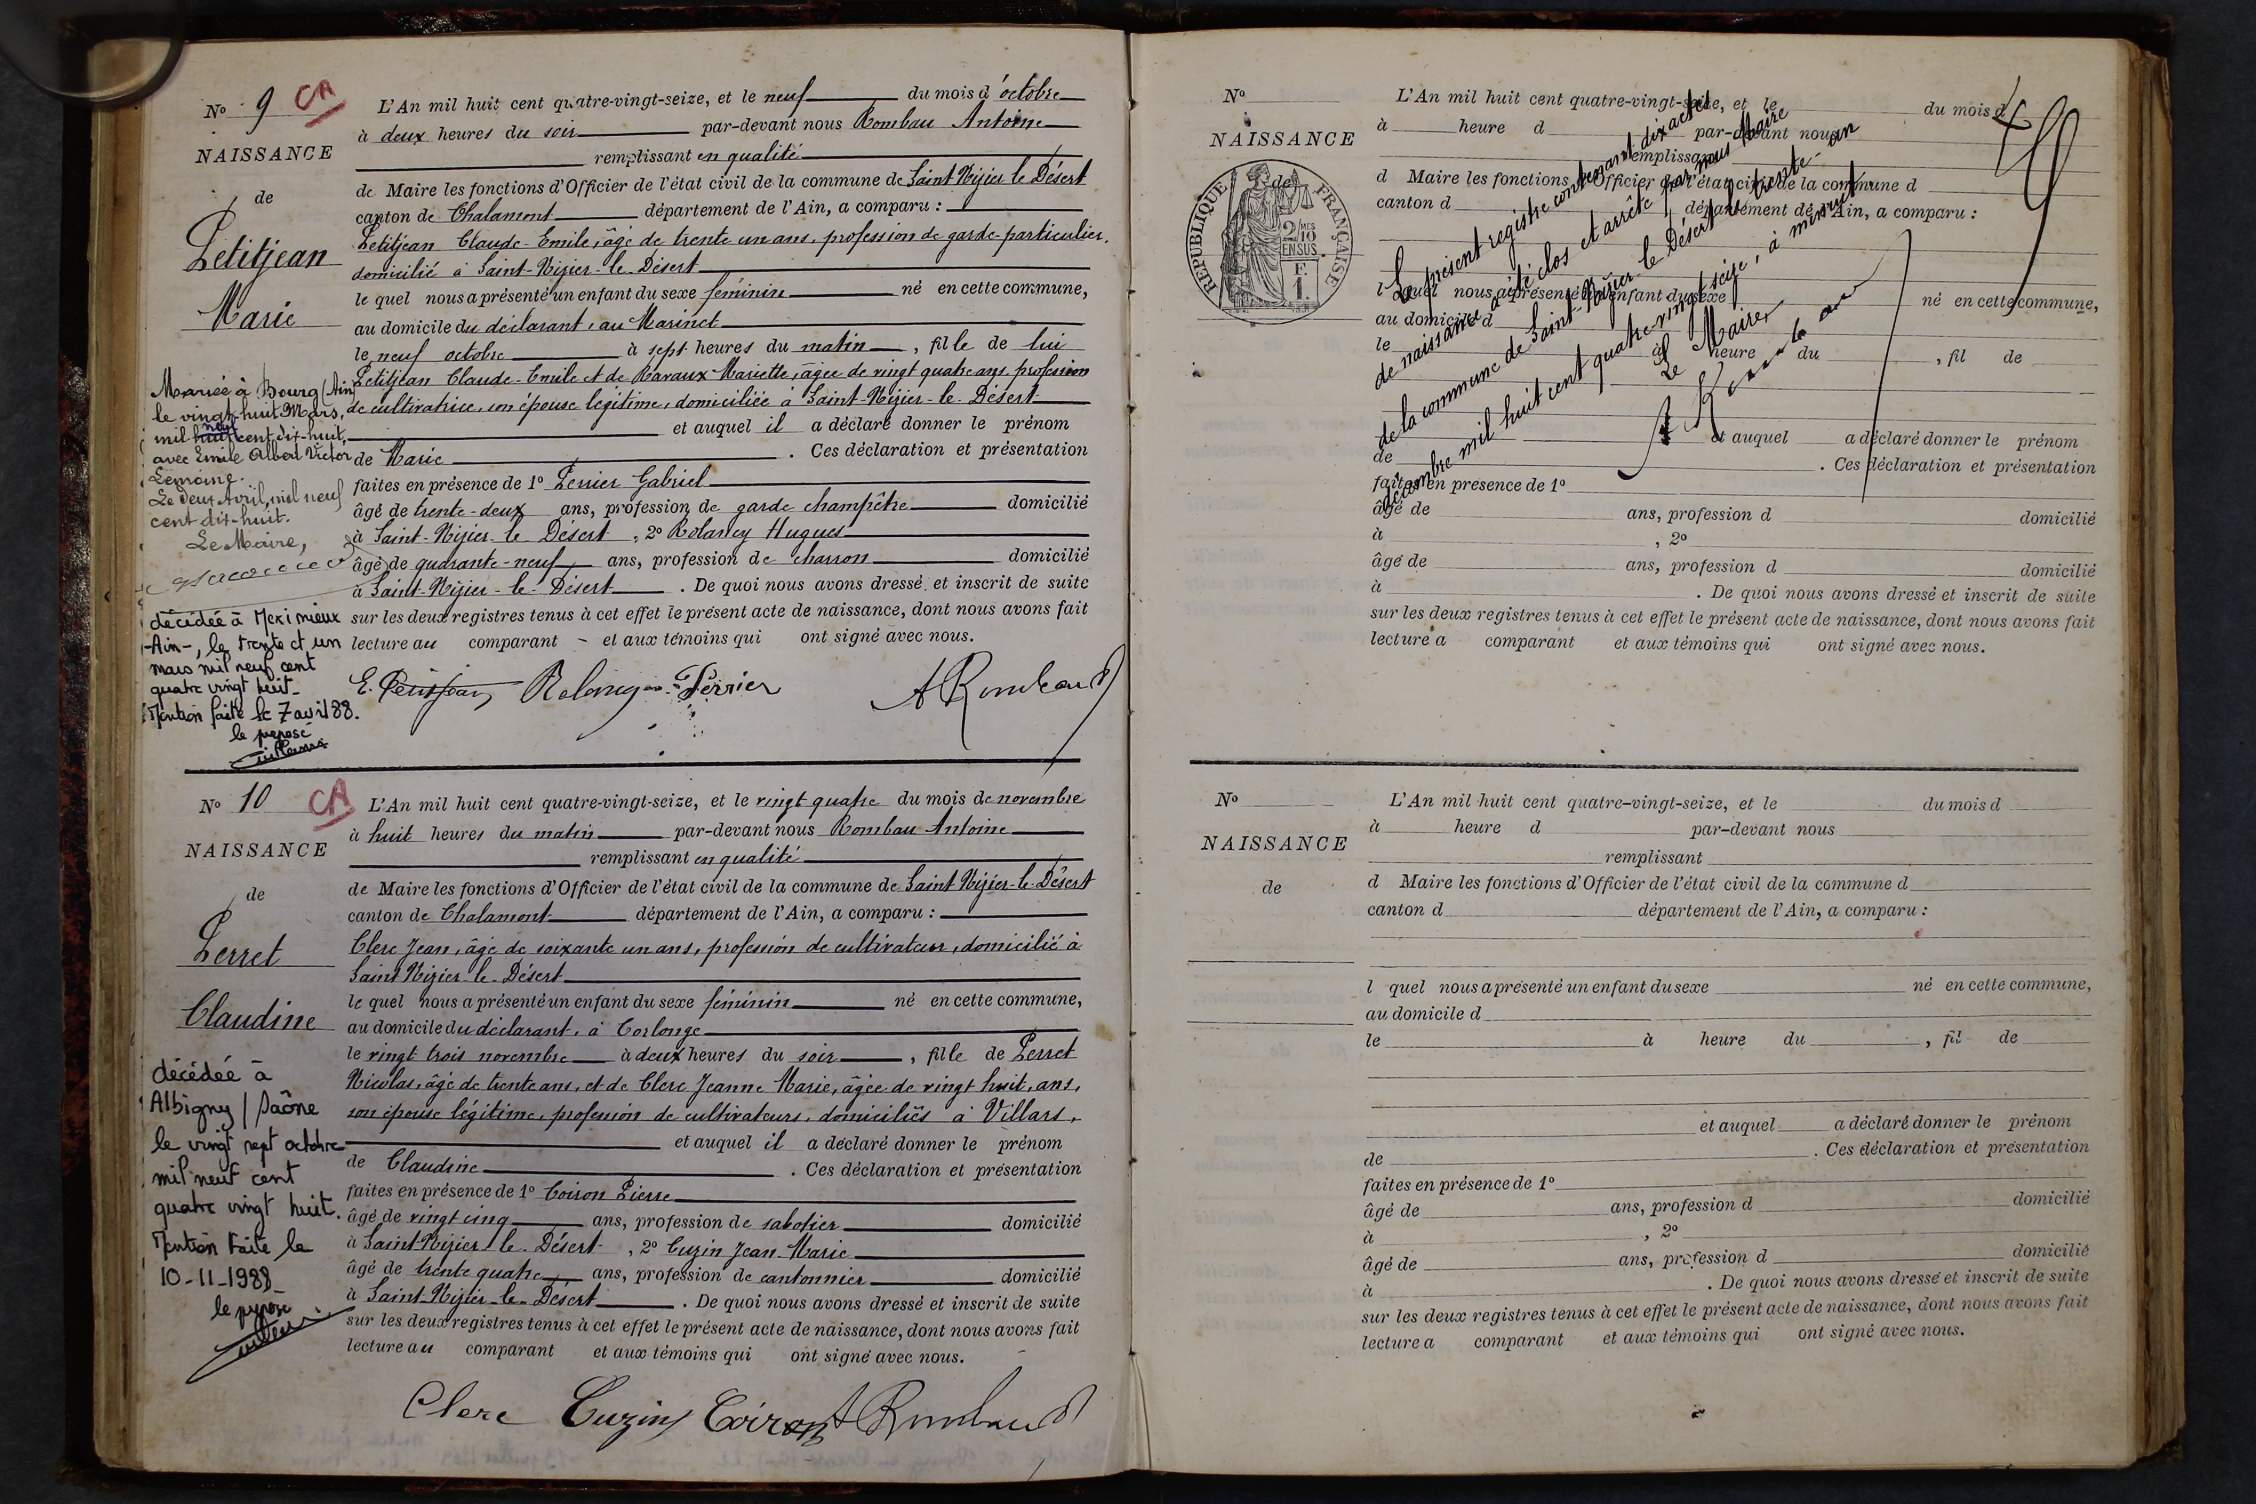 N° 9 CA
NAISSANCE
de
Petitjean
Marie
L'An mil huit cent quatre-vingt-seize, et le neuf du mois d'octobre
à deux heures du soir par-devant nous Rombau Antoine
remplissant en qualité
de Maire les fonctions d'Officier de l'état civil de la commune de Saint Nizier le Désert
canton de Chalamont département de l'Ain, a comparu :
Petitjean Claude-Emile, âgé de trente un ans, profession de garde-particulier,
domicilié à Saint-Nizier-le-Désert
le quel nous a présenté un enfant du sexe féminin né en cette commune,
au domicile du déclarant, au Marinet
le neuf octobre à sept heures du matin, fille de lui
Petitjean Claude-Emile et de Ravaux Mariette, âgée de vingt quatre ans, profession
de cultivatrice, son épouse légitime, domiciliée à Saint-Nizier-le-Désert
et auquel il a déclaré donner le prénom
de Marie. Ces déclaration et présentation
faites en présence de 1° Perrier Gabriel
âgé de trente-deux ans, profession de garde champêtre domicilié
à Saint-Nizier-le Désert, 2° Rolancy Hugues
âgé de quarante-neuf ans, profession de charron domicilié
à Saint-Nizier-le-Désert. De quoi nous avons dressé et inscrit de suite
sur les deux registres tenus à cet effet le présent acte de naissance, dont nous avons fait
lecture au comparant - et aux témoins qui ont signé avec nous.
E. Petitjean Perrier A Rombaud
Mariée à Bourg (Ain)
le vingt-huit Mars,
mil neuf cent dix-huit,
avec Emile Albert Victor
Lemoine.
Le deux Avril, mil neuf
cent dix-huit.
Le Maire,
décédée à Meximieux
-Ain-, le trente et un
mars mil neuf cent
quatre vingt huit_
Mention faite le 7 avril 88.
le préposé
N° 10 CA
NAISSANCE
de
Perret
Claudine
L'An mil huit cent quatre-vingt-seize, et le vingt quatre du mois de novembre
à huit heures du matin par-devant nous Rombau Antoine
remplissant en qualité
de Maire les fonctions d'Officier de l'état civil de la commune de Saint Nizier-le-Désert
canton de Chalamont département de l'Ain, a comparu :
Clerc Jean, âgé de soixante un ans, profession de cultivateur, domicilié à
Saint Nizier-le-Désert
le quel nous a présenté un enfant du sexe féminin né en cette commune,
au domicile du déclarant, à Corlonge
le vingt trois novembre à deux heures du soir, fille de Perret
Nicolas, âgé de trente ans, et de Clerc Jeanne Marie, âgée de vingt huit, ans,
son épouse légitime, profession de cultivateurs, domiciliés à Villars,
et auquel il a déclaré donner le prénom
de Claudine. Ces déclaration et présentation
faites en présence de 1° Coiron Pierre
âgé de vingt cinq ans, profession de sabotier domicilié
à Saint-Nizier-le-Désert, 2° Cuzin Jean-Marie
âgé de trente quatre ans, profession de cantonnier domicilié
à Saint-Nizier-le-Désert. De quoi nous avons dressé et inscrit de suite
sur les deux registres tenus à cet effet le présent acte de naissance, dont nous avons fait
lecture au comparant et aux témoins qui ont signé avec nous.
Clerc Cuzin Coiron A Rombaud
décédée à
Albigny / Saône
le vingt sept octobre
mil neuf cent
quatre vingt huit.
Mention Faite le
10-11-1988_
le préposé
N°
NAISSANCE
de
RÉPUBLIQUE FRANÇAISE
2/10 MES
EN SUS
F.
1.
L'An mil huit cent quatre-vingt-seize, et le du mois d
à heure d par-devant nous
remplissant
d Maire les fonctions d'Officier de l'état civil de la commune d
canton d département de l'Ain, a comparu :
l quel nous a présenté un enfant du sexe né en cette commune,
au domicile d
le à heure du, fil de
et auquel a déclaré donner le prénom
de. Ces déclaration et présentation
faites en présence de 1°
âgé de ans, profession d domicilié
à, 2°
âgé de ans, profession d domicilié
à. De quoi nous avons dressé et inscrit de suite
sur les deux registres tenus à cet effet le présent acte de naissance, dont nous avons fait
lecture a comparant et aux témoins qui ont signé avec nous.
Le présent registre contenant dix actes
de naissance a été clos et arrêté par nous Maire
de la commune de Saint-Nizier le Désert le trente-un
décembre mil huit cent quatre-vingt seize, à minuit.
Le Maire,
A Rombaud
N°
NAISSANCE
de
L'An mil huit cent quatre-vingt-seize, et le du mois d
à heure d par-devant nous
remplissant
d Maire les fonctions d'Officier de l'état civil de la commune d
canton d département de l'Ain, a comparu :
l quel nous a présenté un enfant du sexe né en cette commune,
au domicile d
le à heure du, fil de
et auquel a déclaré donner le prénom
de. Ces déclaration et présentation
faites en présence de 1°
âgé de ans, profession d domicilié
à, 2°
âgé de ans, profession d domicilié
à. De quoi nous avons dressé et inscrit de suite
sur les deux registres tenus à cet effet le présent acte de naissance, dont nous avons fait
lecture a comparant et aux témoins qui ont signé avec nous.